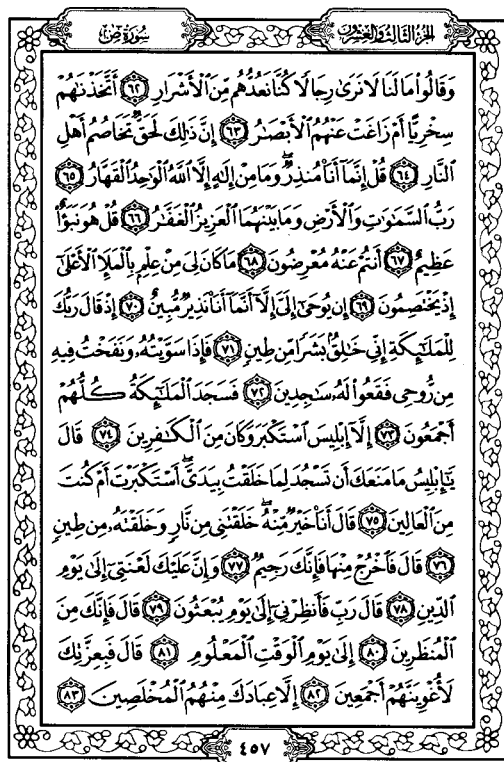 سُورَةُ صٓ
الجُزْءُ الثَّالِثُ وَالعِشْرُونَ
وَقَالُوا۟ مَا لَنَا لَا نَرَىٰ رِجَالًا كُنَّا نَعُدُّهُم مِّنَ ٱلْأَشْرَارِ ٦٢ أَتَّخَذْنَٰهُمْ
سِخْرِيًّا أَمْ زَاغَتْ عَنْهُمُ ٱلْأَبْصَٰرُ ٦٣ إِنَّ ذَٰلِكَ لَحَقٌّ تَخَاصُمُ أَهْلِ
ٱلنَّارِ ٦٤ قُلْ إِنَّمَآ أَنَا۠ مُنذِرٌ ۖ وَمَا مِنْ إِلَٰهٍ إِلَّا ٱللَّهُ ٱلْوَٰحِدُ ٱلْقَهَّارُ ٦٥
رَبُّ ٱلسَّمَٰوَٰتِ وَٱلْأَرْضِ وَمَا بَيْنَهُمَا ٱلْعَزِيزُ ٱلْغَفَّٰرُ ٦٦ قُلْ هُوَ نَبَؤٌا۟
عَظِيمٌ ٦٧ أَنتُمْ عَنْهُ مُعْرِضُونَ ٦٨ مَا كَانَ لِىَ مِنْ عِلْمٍۭ بِٱلْمَلَإِ ٱلْأَعْلَىٰٓ
إِذْ يَخْتَصِمُونَ ٦٩ إِن يُوحَىٰٓ إِلَىَّ إِلَّآ أَنَّمَآ أَنَا۠ نَذِيرٌ مُّبِينٌ ٧٠ إِذْ قَالَ رَبُّكَ
لِلْمَلَٰٓئِكَةِ إِنِّى خَٰلِقٌۢ بَشَرًا مِّن طِينٍ ٧١ فَإِذَا سَوَّيْتُهُۥ وَنَفَخْتُ فِيهِ
مِن رُّوحِى فَقَعُوا۟ لَهُۥ سَٰجِدِينَ ٧٢ فَسَجَدَ ٱلْمَلَٰٓئِكَةُ كُلُّهُمْ
أَجْمَعُونَ ٧٣ إِلَّآ إِبْلِيسَ ٱسْتَكْبَرَ وَكَانَ مِنَ ٱلْكَٰفِرِينَ ٧٤ قَالَ
يَٰٓإِبْلِيسُ مَا مَنَعَكَ أَن تَسْجُدَ لِمَا خَلَقْتُ بِيَدَىَّ ۖ أَسْتَكْبَرْتَ أَمْ كُنتَ
مِنَ ٱلْعَالِينَ ٧٥ قَالَ أَنَا۠ خَيْرٌ مِّنْهُ ۖ خَلَقْتَنِى مِن نَّارٍ وَخَلَقْتَهُۥ مِن طِينٍ
٧٦ قَالَ فَٱخْرُجْ مِنْهَا فَإِنَّكَ رَجِيمٌ ٧٧ وَإِنَّ عَلَيْكَ لَعْنَتِىٓ إِلَىٰ يَوْمِ
ٱلدِّينِ ٧٨ قَالَ رَبِّ فَأَنظِرْنِىٓ إِلَىٰ يَوْمِ يُبْعَثُونَ ٧٩ قَالَ فَإِنَّكَ مِنَ
ٱلْمُنظَرِينَ ٨٠ إِلَىٰ يَوْمِ ٱلْوَقْتِ ٱلْمَعْلُومِ ٨١ قَالَ فَبِعِزَّتِكَ
لَأُغْوِيَنَّهُمْ أَجْمَعِينَ ٨٢ إِلَّا عِبَادَكَ مِنْهُمُ ٱلْمُخْلَصِينَ ٨٣
٤٥٧